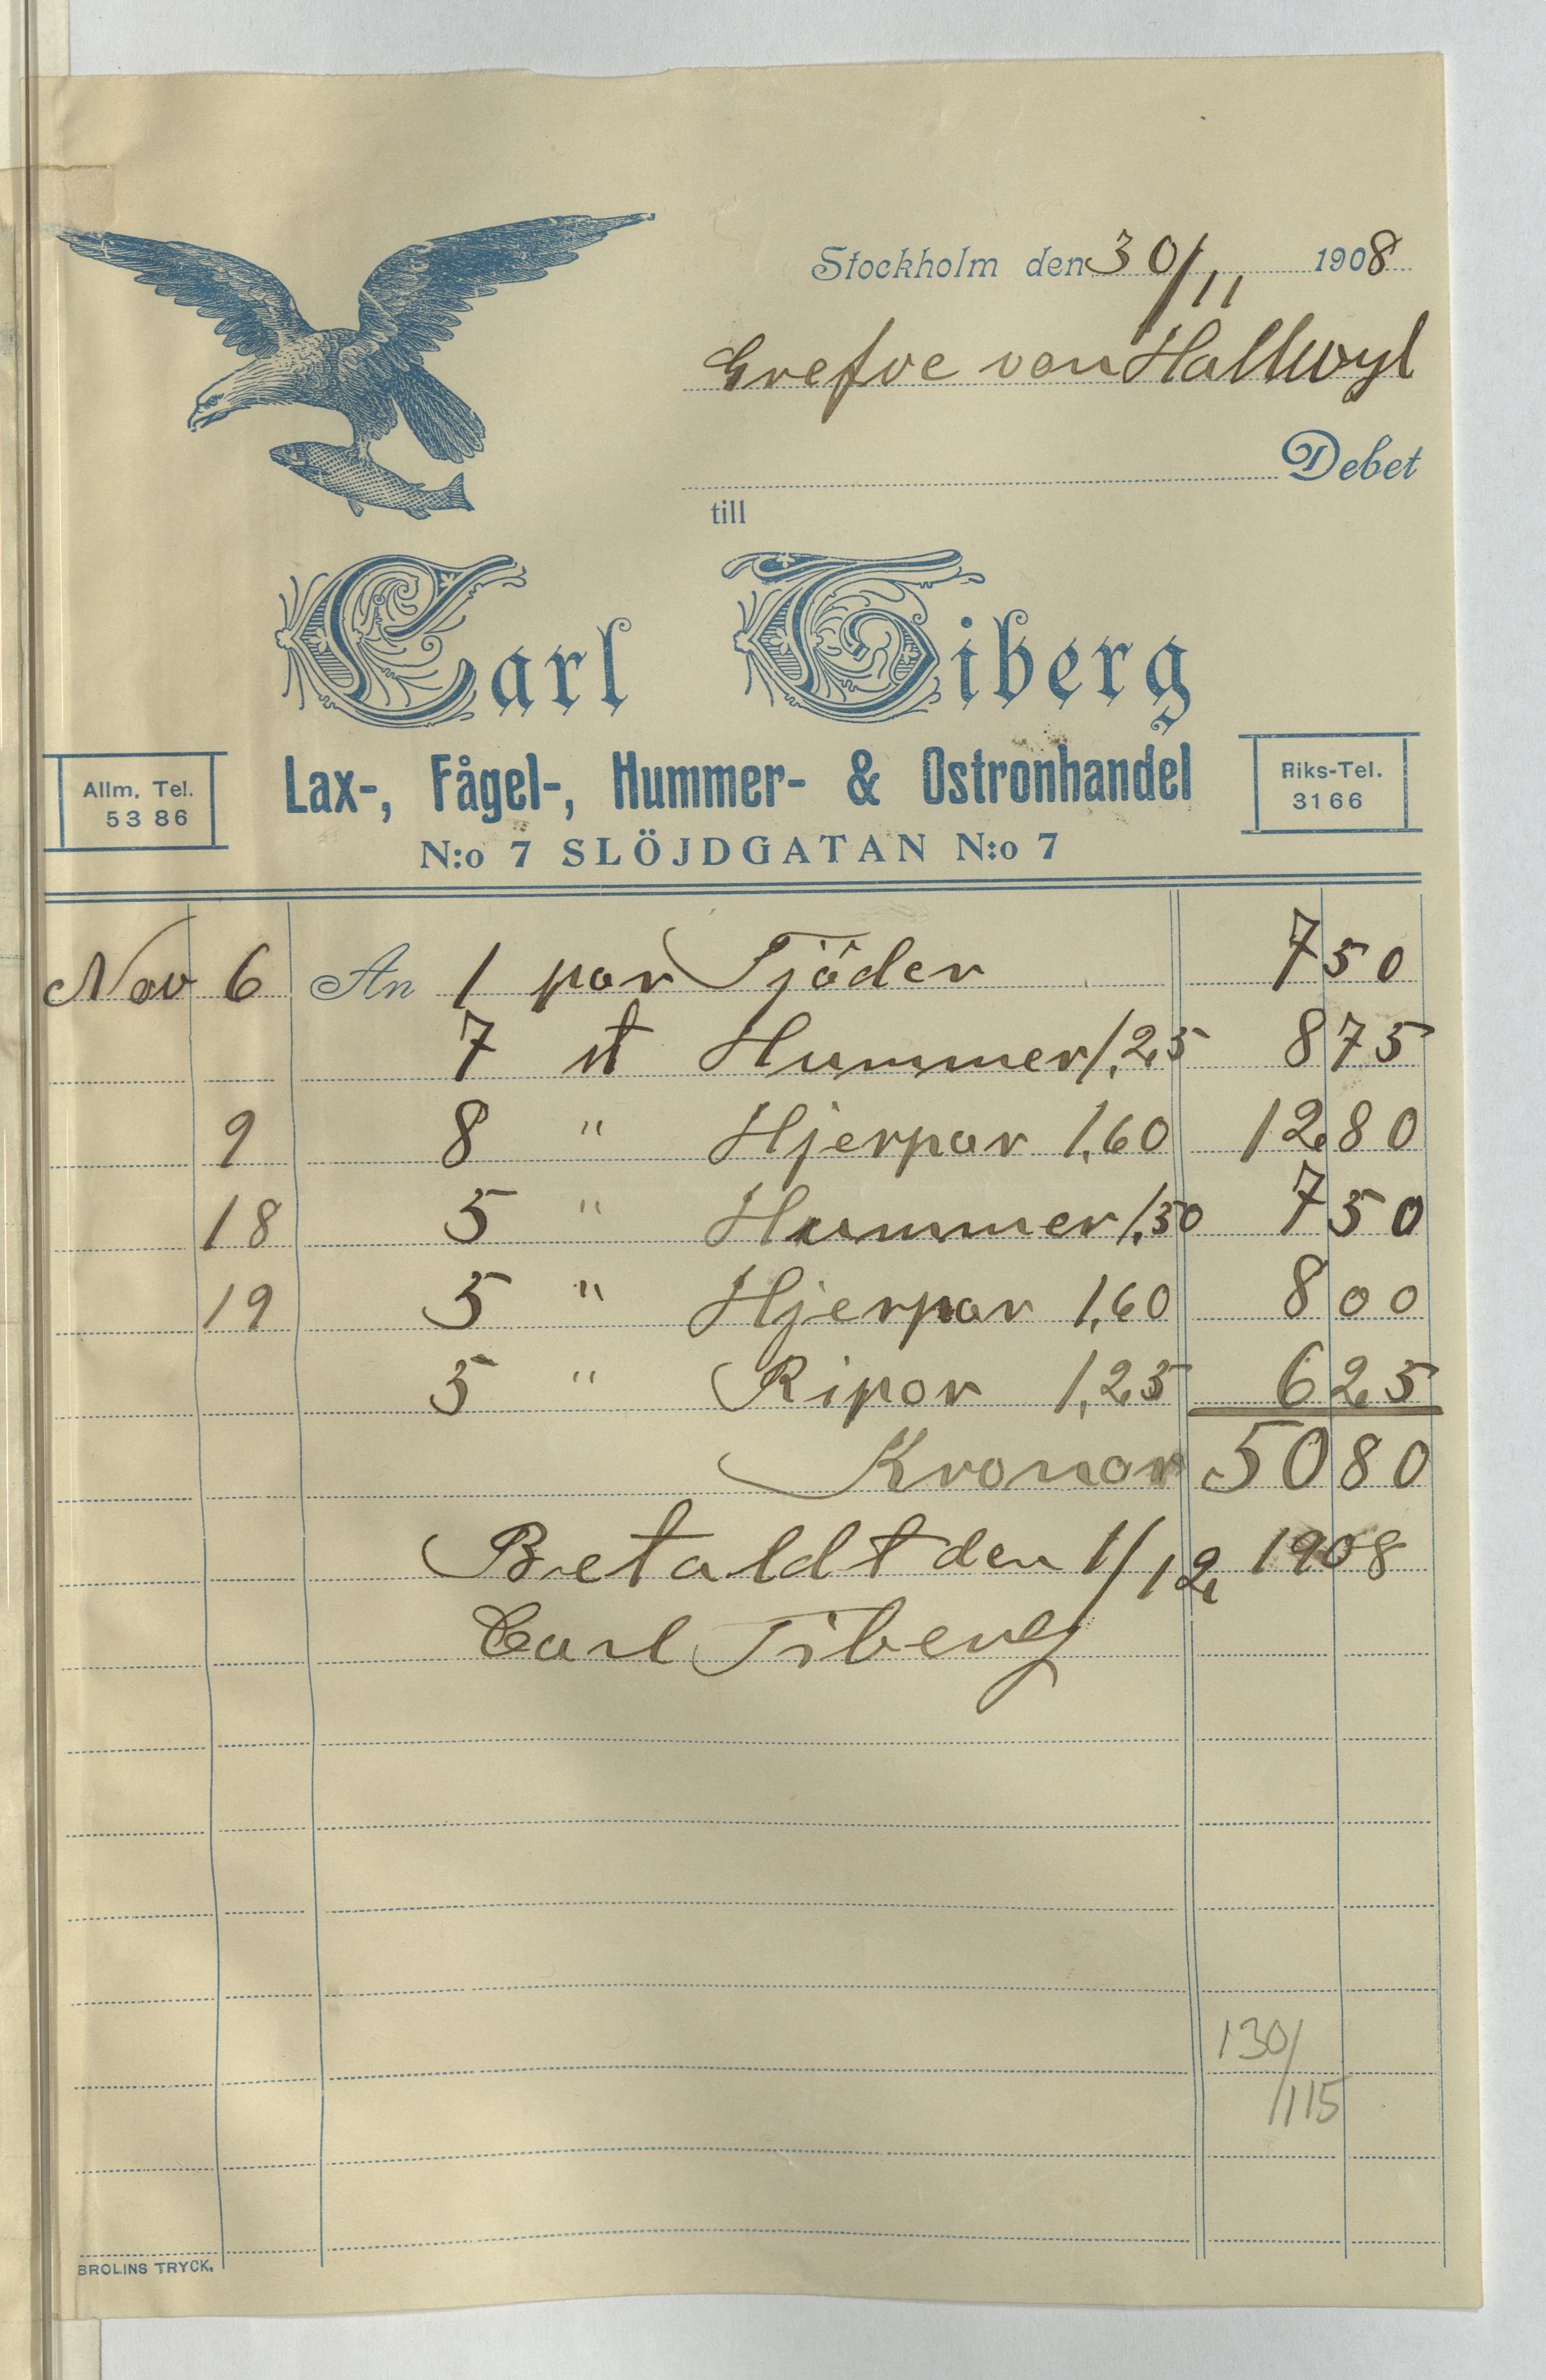 Stockholm den 30/11 1908
Grefve von Hallwyl
Debet
till
Carl Tiberg
Allm. Tel. 5386
Lax-, Fågel-, Hummer- & Ostronhandel
Riks-Tel. 3166
N:o 7 SLÖJDGATAN N:o 7
Nov 6 An 1 par Tjäder 7 50
7 st Hummer 1,25 8 75
9 8 " Hjerpar 1,60 12 80
18 5 " Hummer 1,50 7 50
19 5 " Hjerpar 1,60 8 00
5 " Ripor 1,25 6 25
Kronor 50 80
Betaldt den 1/12 1908
Carl Tiberg
130/115
BROLINS TRYCK.